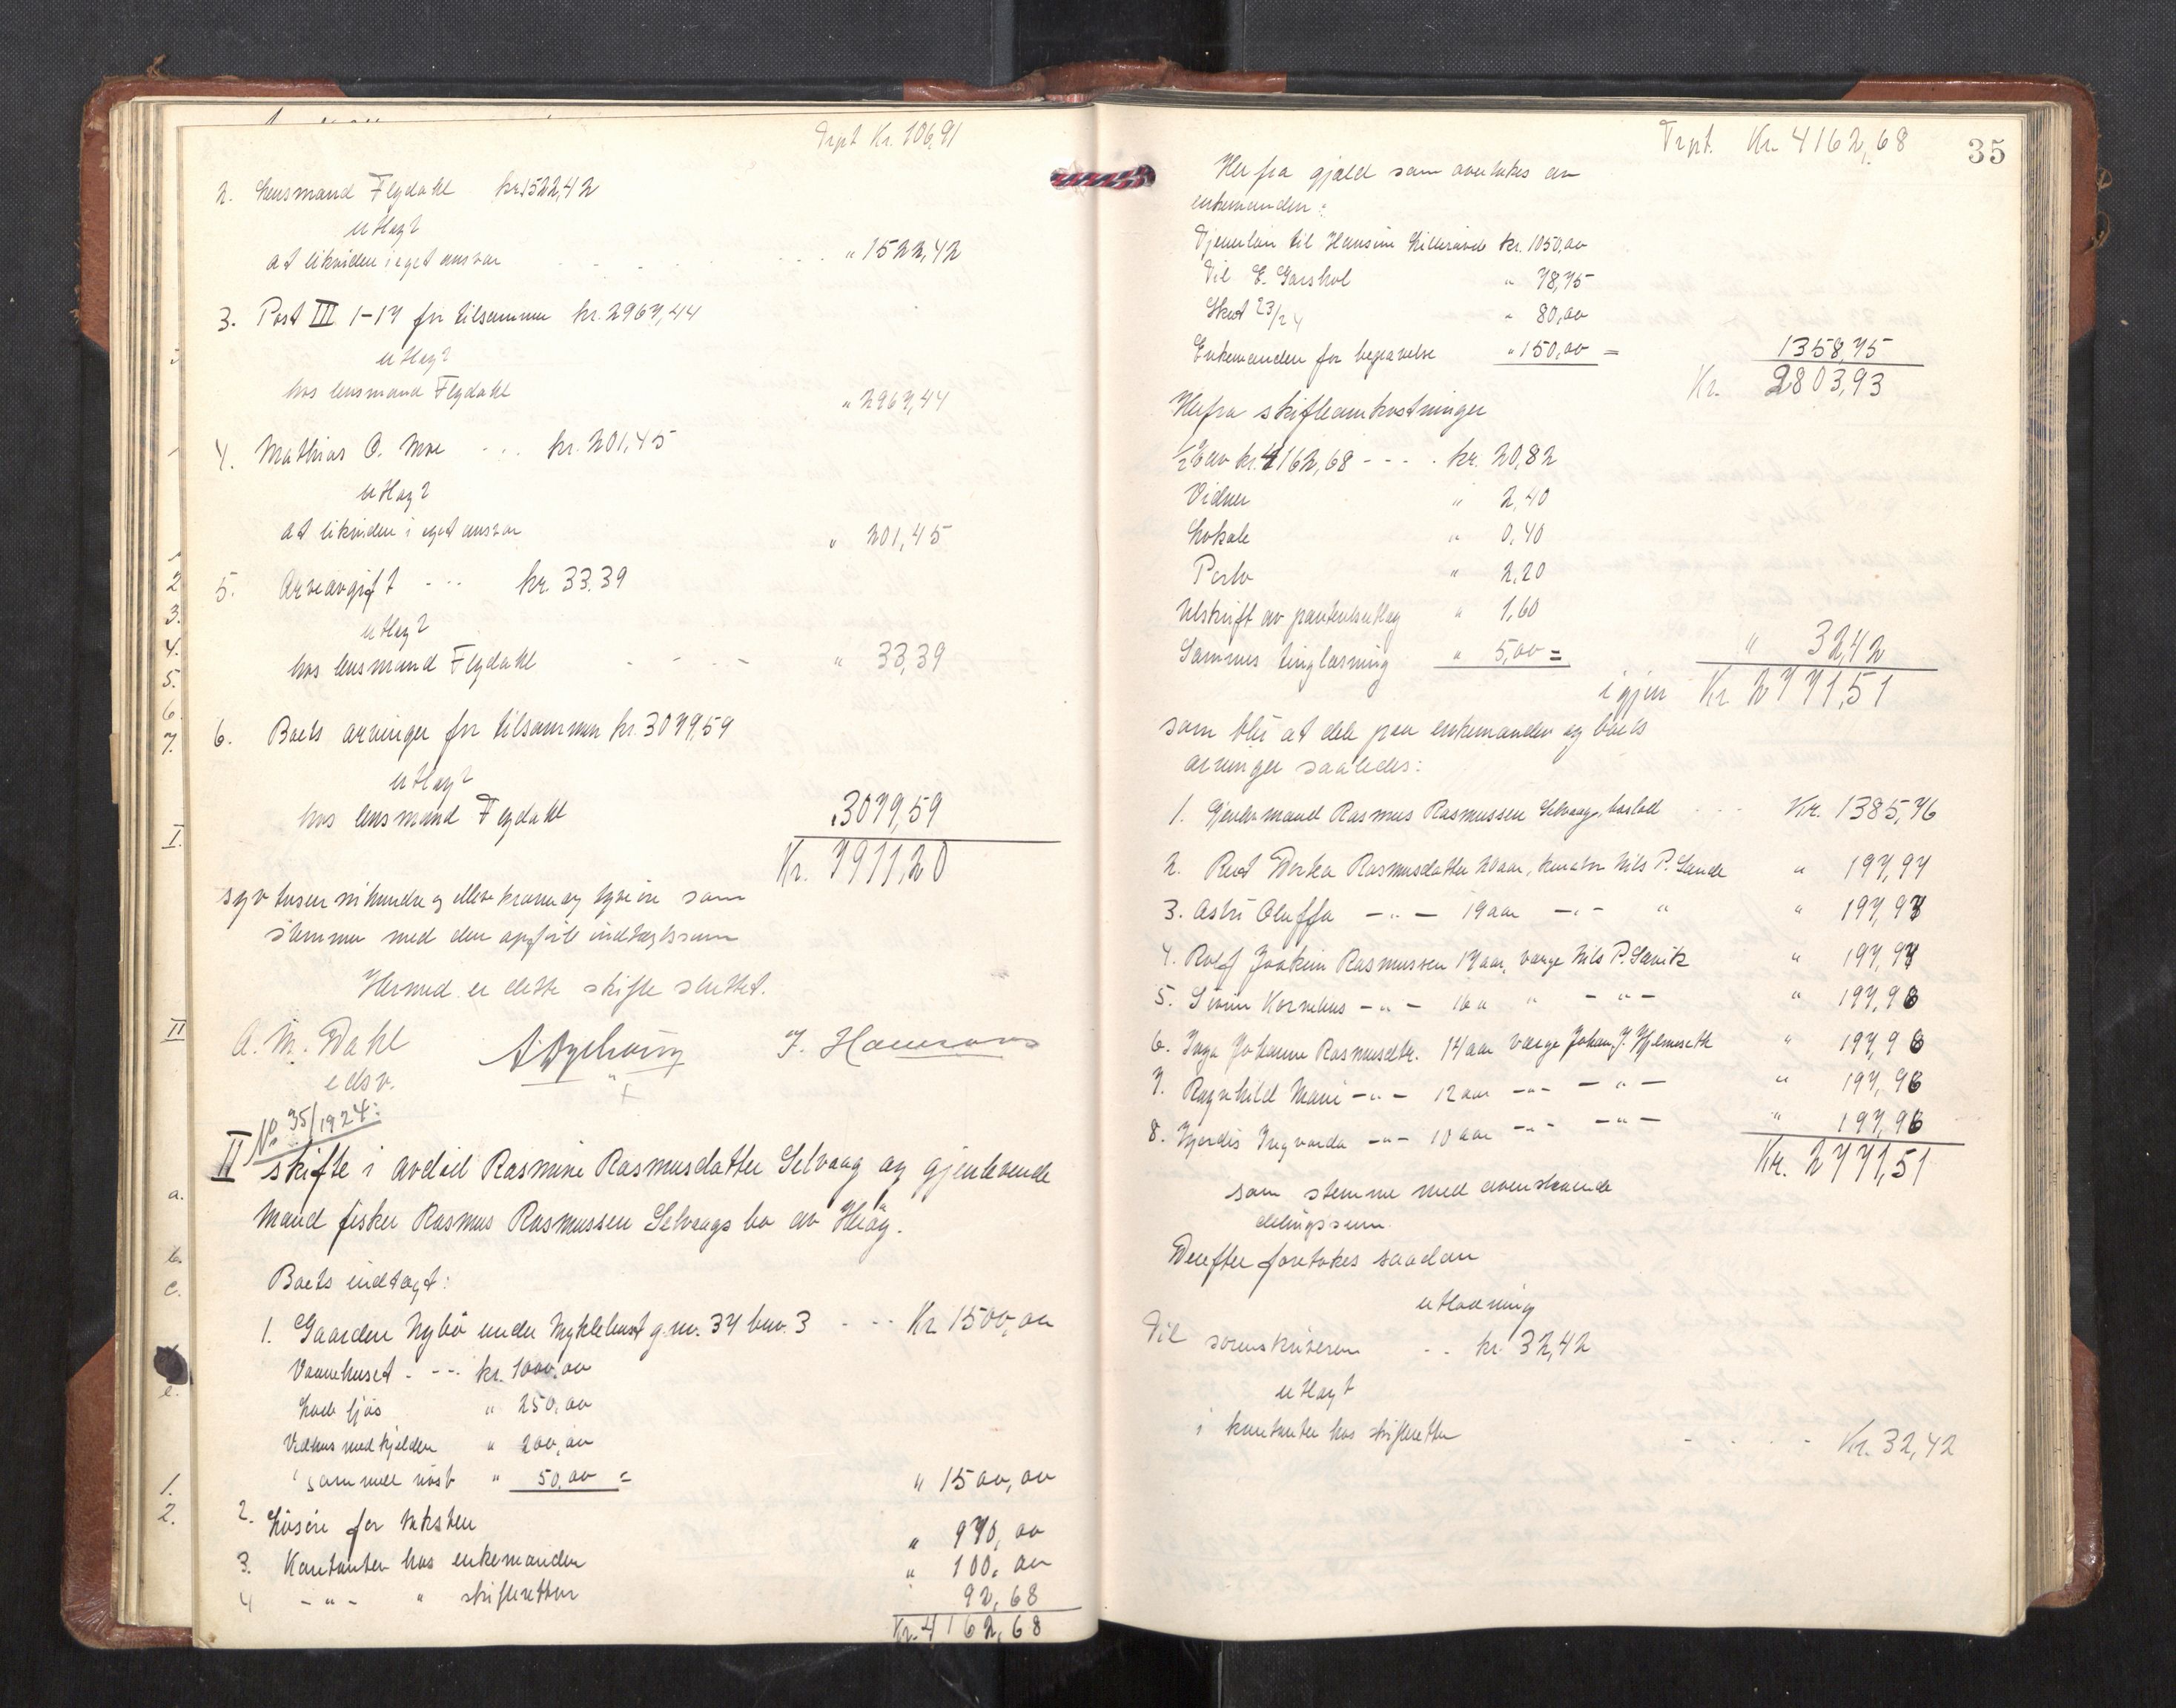 Trpt Kr. 106,91
2. Lensmand Flydahl kr. 1522,42
utlagt
at likviden i eget ansvar " 1522,42
3. Post III 1-17 for tilsammen kr. 2967,44
utlagt
hos lensmand Flydahl " 2967,44
4. Mathias O. Moe - - - kr. 201,45
utlagt
at likviden i eget ansvar " 201,45
5. Arveavgift - - - kr. 33.39
utlagt
hos lensmand Flydahl - - - - " 33,39
6. Boets arvinger for tilsammen kr. 3079,59
utlagt
hos lensmand Flydahl " 3079,59
Kr. 7911,20
syv tusen nihundre og elleve kroner og tyve øre som
stemmer med den opførte indtægtssum
Hermed er dette skifte sluttet.
A. M. Dahl
edsv.
No 35/1924:
II skifte i avdød Rasmine Rasmusdatter Selvaag og gjenlevende
mand fisker Rasmus Rasmussen Selvaags bo av Herøy.
Boets indtægt:
1. Gaarden Nybö under Myklebust g.nr. 37 bnr. 3 - - - Kr 1500,00
Vaanehuset - - - kr. 1000,00
Lade fjös " 250,00
Vedhus med kjelder " 200,00
Gammelt nöst " 50,00 = " 1500,00
2. Lösöre for takster " 970,00
3. Kontanter hos enkemanden " 100,00
4 - " - " skifteretten 92,68
Kr. 4162,68
35
Trpt. Kr 4162,68
Herfra gjæld som overtakes av
enkemanden:
Tjenerløn til Hansine Lillerøvde kr. 1050,00
Til E. Garshol " 78,75
Skat 23/24 " 80,00
Enkemanden for begravelse " 150,00 = 1358,75
Kr. 2803,93
Herfra skifteomkostninger
1/2 % av kr. 4162,68 - - - - kr. 20,82
Vidner " 2,40
Lokale " 0,40
Porto " 2,20
Utskrift av panteutlæg " 1,60
Sammes tinglæsning " 5,00 = " 32,42
igjen Kr. 2771,51
som blir at dele paa enkemanden og boets
arvinger saaledes:
1. Gjenlev. mand Rasmus Rasmussen Selvaag, boslod - - - Kr. 1385,76
2. Rasmusdatter 20 aar, kurator Nils P. Sande " 197,97
3. Astri Oluffa - " - 19 aar - " - " " 197,97
4. Rolf Joakim Rasmussen 17 aar, verge Nils P. Sævik " 197,97
5. Kornelius - " - 16 " " - " - " 197,96
6. Inga Johanne Rasmusdtr. 14 aar verge Johan J. Hjelmeseth " 197,96
7. Ragnhild Marie - " - 12 aar - " - - " - " 197,96
8. Hjørdis Ingvarda - " - 10 aar - " - - " - " 197,96
Kr. 2771,51
som stemmer med ovenstaaende
delingssum.
Derefter foretokes saadan
utlodning
Til sorenskriveren - - kr 32,42
utlagt
i kontanter hos skifteretten - - - - Kr. 32,42